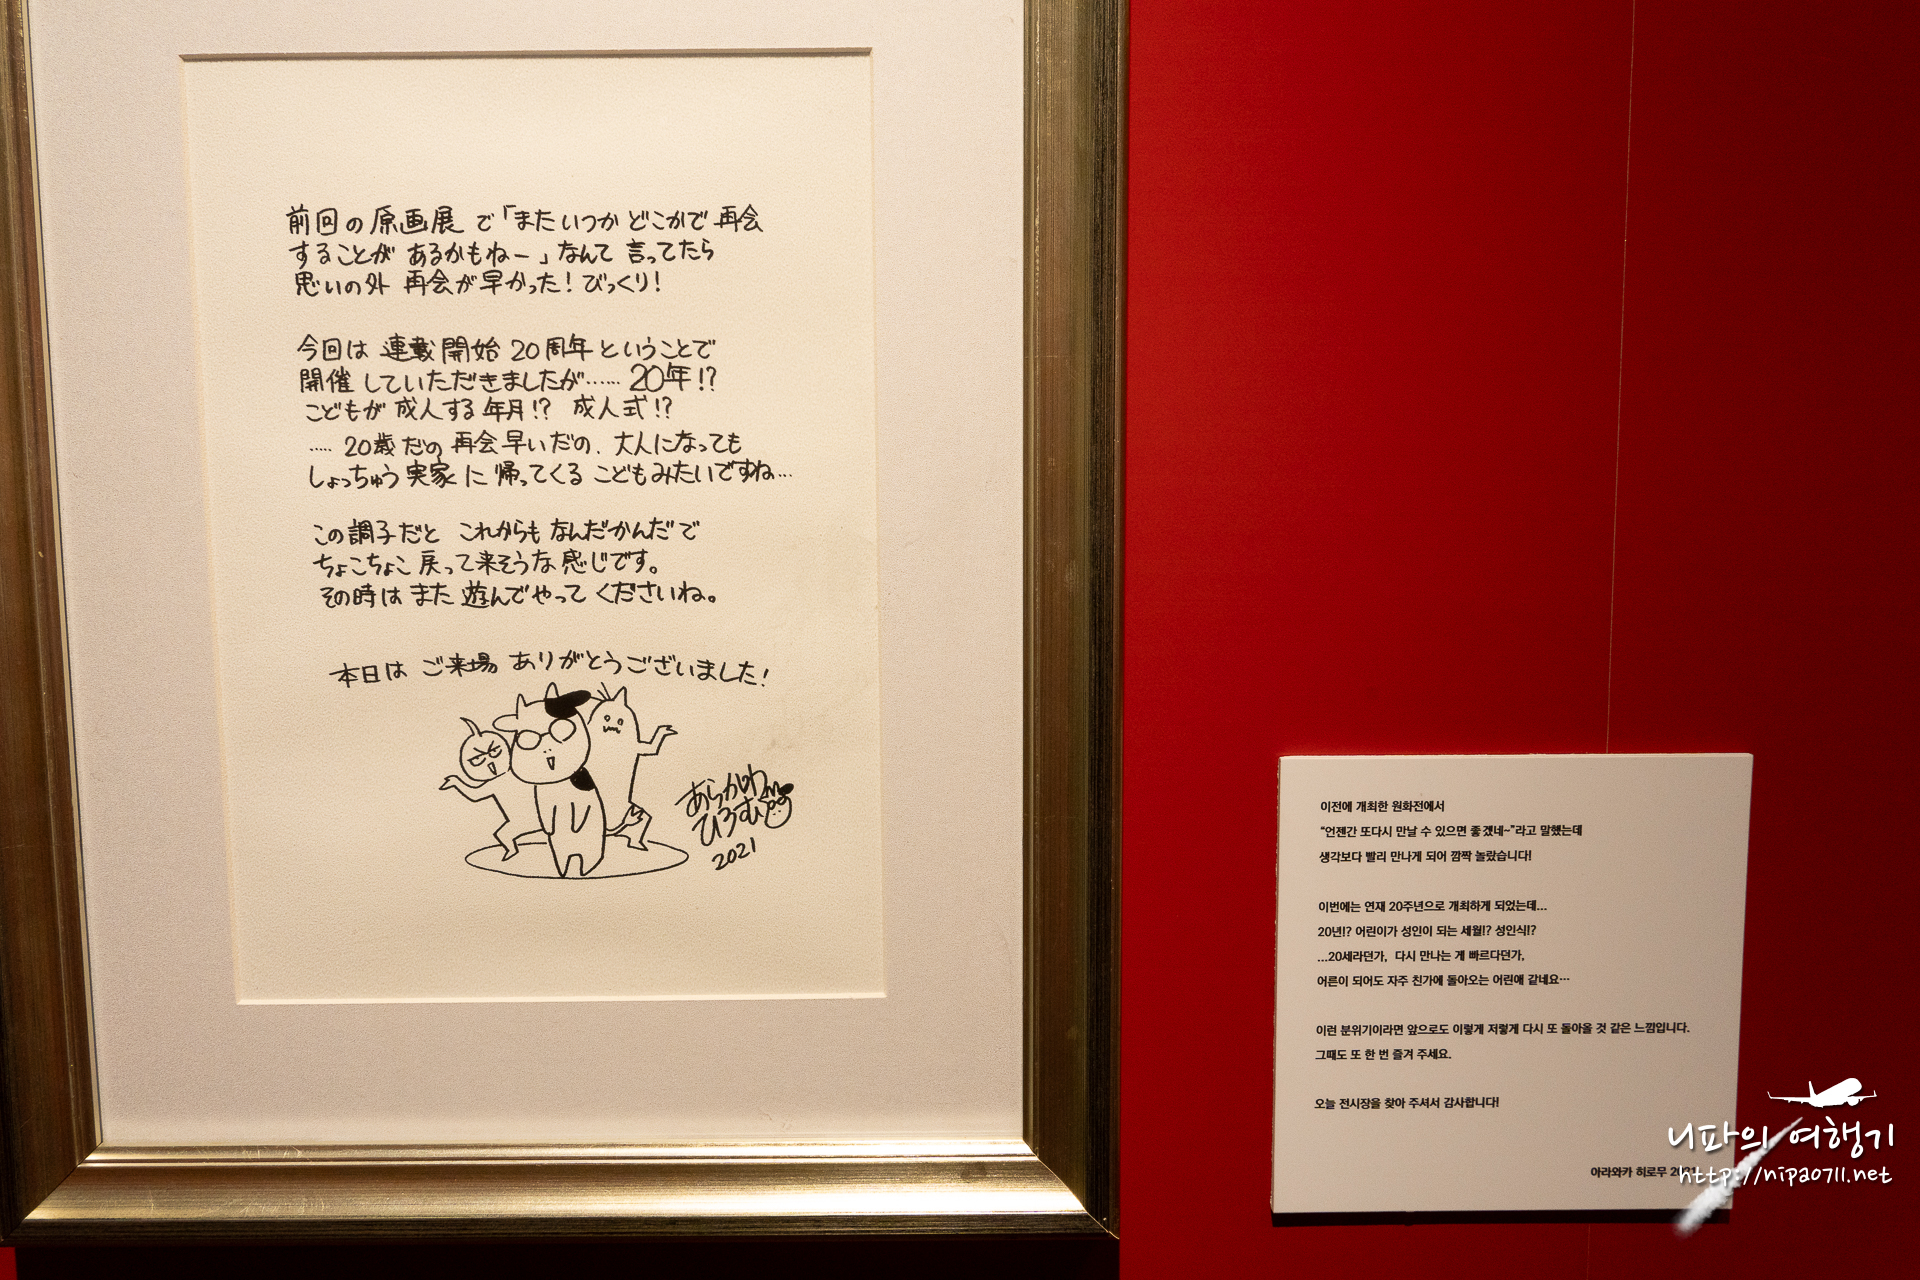 前回の原画展で「またいつかどこかで再会
することがあるかもねー」なんて言ってたら
思いの外再会が早かった!びっくり!
今回は連載開始20周年ということで
開催していただきましたが……20年!?
こどもが成人する年月!?成人式!?
……20歳だの再会早いだの、大人になっても
しょっちゅう実家に帰ってくるこどもみたいですね…
この調子だとこれからもなんだかんだで
ちょこちょこ戻って来そうな感じです。
その時はまた遊んでやってくださいね。
本日はご来場ありがとうございました!
あらかわ
ひろむ
2021
이전에 개최한 원화전에서
“언젠간 또다시 만날 수 있으면 좋겠네~”라고 말했는데
생각보다 빨리 만나게 되어 깜짝 놀랐습니다!
이번에는 연재 20주년으로 개최하게 되었는데...
20년!? 어린이가 성인이 되는 세월!? 성인식!?
...20세라던가, 다시 만나는 게 빠르다던가,
어른이 되어도 자주 친가에 돌아오는 어린애 같네요…
이런 분위기이라면 앞으로도 이렇게 저렇게 다시 또 돌아올 것 같은 느낌입니다.
그때도 또 한 번 즐겨 주세요.
오늘 전시장을 찾아 주셔서 감사합니다!
아라와카 히로무
니파의 여행기
http://nipa0711.net